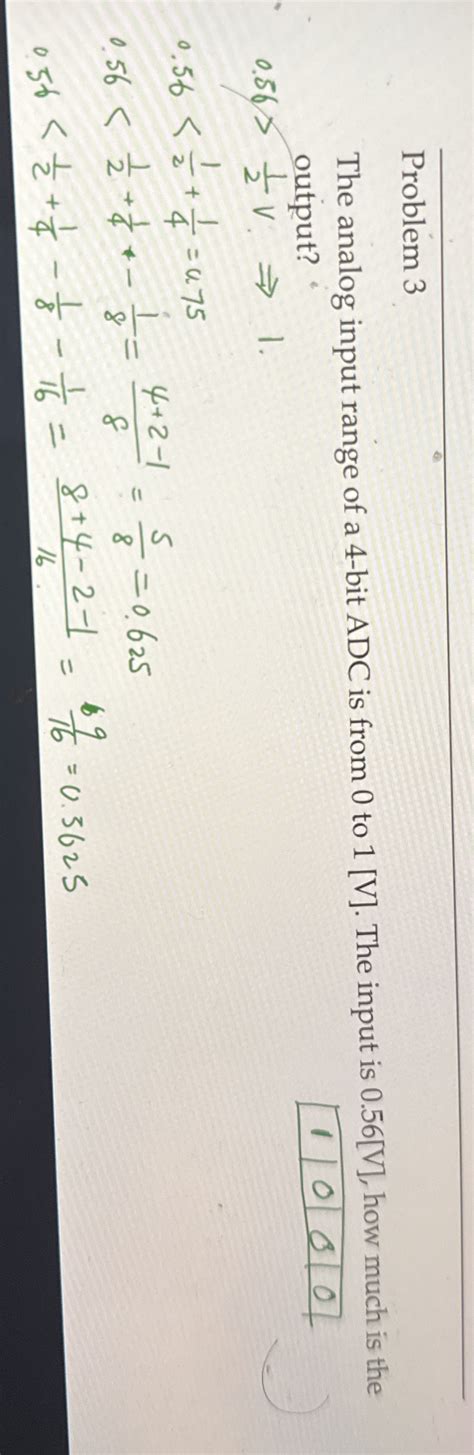 Problem 3
The analog input range of a 4-bit ADC is from 0 to 1 [V]. The input is 0.56[V], how much is the
output?
1 0 0 0
0.56 > 1/2 V. ⇒ 1.
0.56 < 1/2 + 1/4 = 0.75
0.56 < 1/2 + 1/4 - 1/8 = 4+2-1/8 = 5/8 = 0.625
0.56 < 1/2 + 1/4 - 1/8 - 1/16 = 8+4-2-1/16 = 9/16 = 0.5625